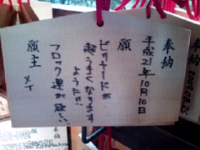 奉納
平成21年10月10日
願
ビリヤードが
超うまくなります
ように!!
フロック運が欲しい
願主 メイ